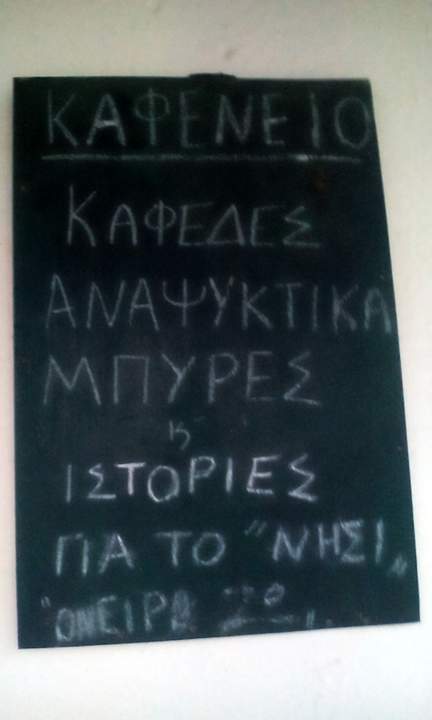 ΚΑΦΕΝΕΙΟ
ΚΑΦΕΔΕΣ
ΑΝΑΨΥΚΤΙΚΑ
ΜΠΥΡΕΣ
κ
ΙΣΤΟΡΙΕΣ
ΓΙΑ ΤΟ "ΝΗΣΙ„
"ΟΝΕΙΡΟ